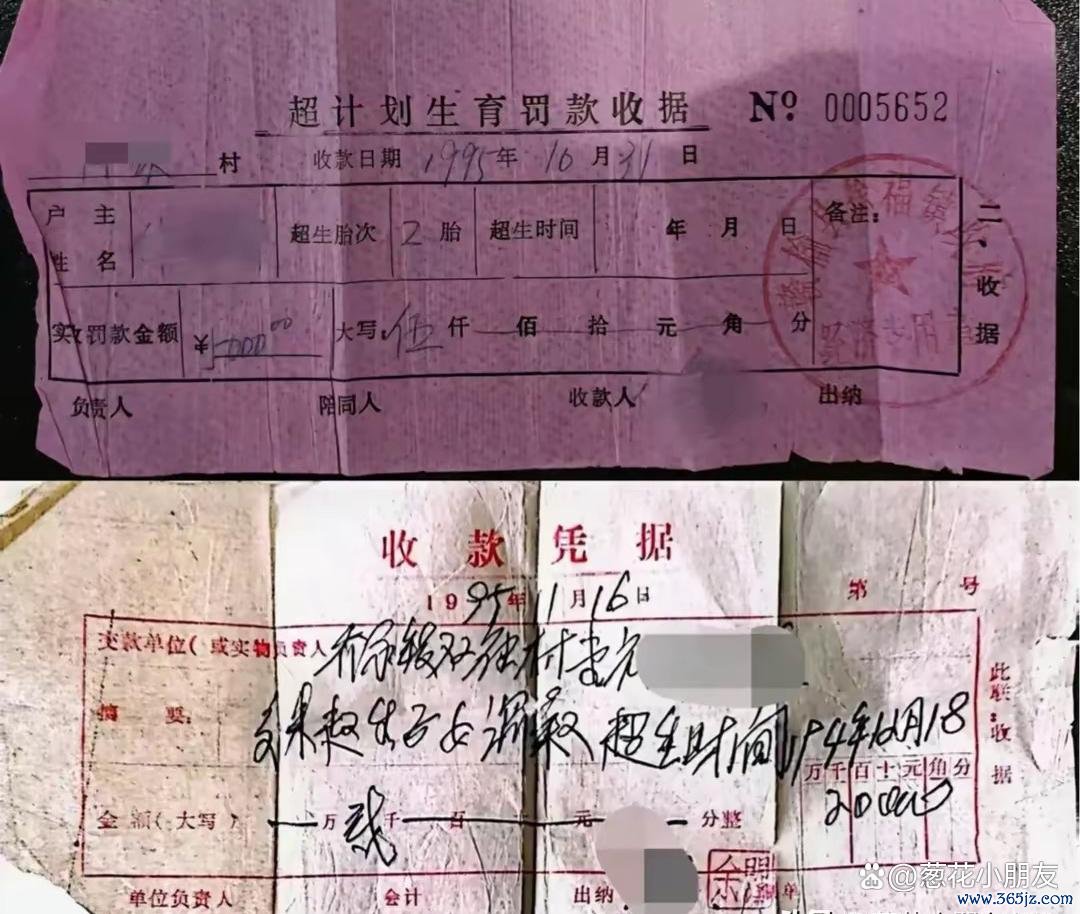 超计划生育罚款收据 Nº 0005652
村 收款日期 1995年 10月 31日
户主姓名 超生胎次 2胎 超生时间 年 月 日 备注:
二、收据
实收罚款金额 ¥5000.00 大写:伍仟 佰 拾 元 角 分
负责人 陪同人 收款人 出纳
收款凭据
1995年11月16日 第 号
交款单位(或实物负责人
摘要: 交来超生子女罚款 超生时间94年12月18
此联:收据
万千百十元角分
金额(大写) 万贰千 百 元 分整 200000
单位负责人 会计 出纳
葱花小朋友
www.365jz.com